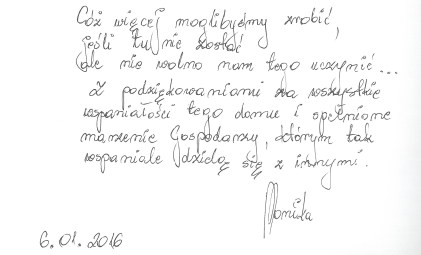 Cóż więcej moglibyśmy zrobić,
jeśli tu nie zostać
ale nie wolno nam tego uczynić...
Z podziękowaniami za wszystkie
wspaniałości tego domu i spełnione
marzenie Gospodarzy, którym tak
wspaniale dzielą się z innymi.
Monika
6.01.2016